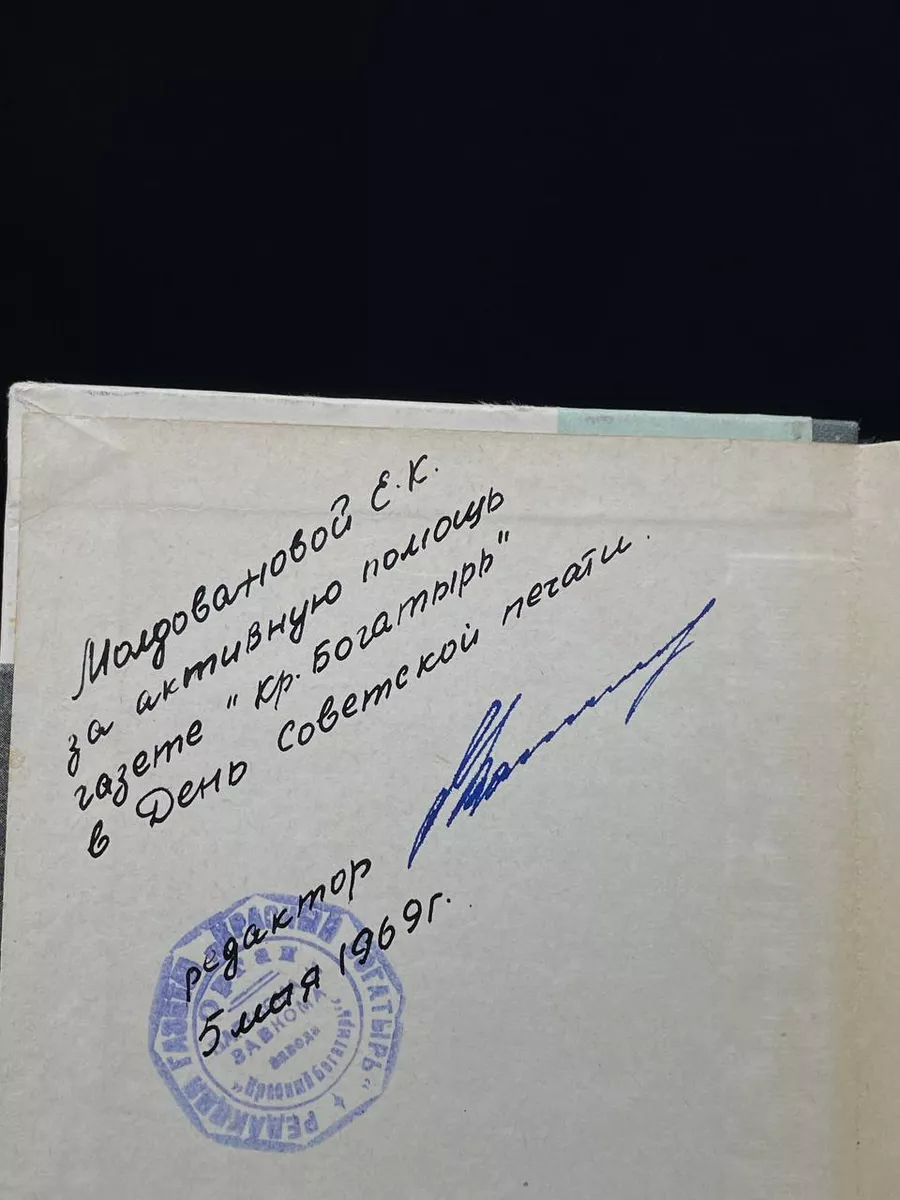 Молдовановой Е.К.
за активную помощь
газете "Кр. Богатырь"
в День советской печати.
редактор
5 мая 1969 г.
РЕДАКЦИЯ ГАЗЕТЫ „КРАСНЫЙ БОГАТЫРЬ“
ОРГАН
ЗАВКОМА
завода
„Красный Богатырь“